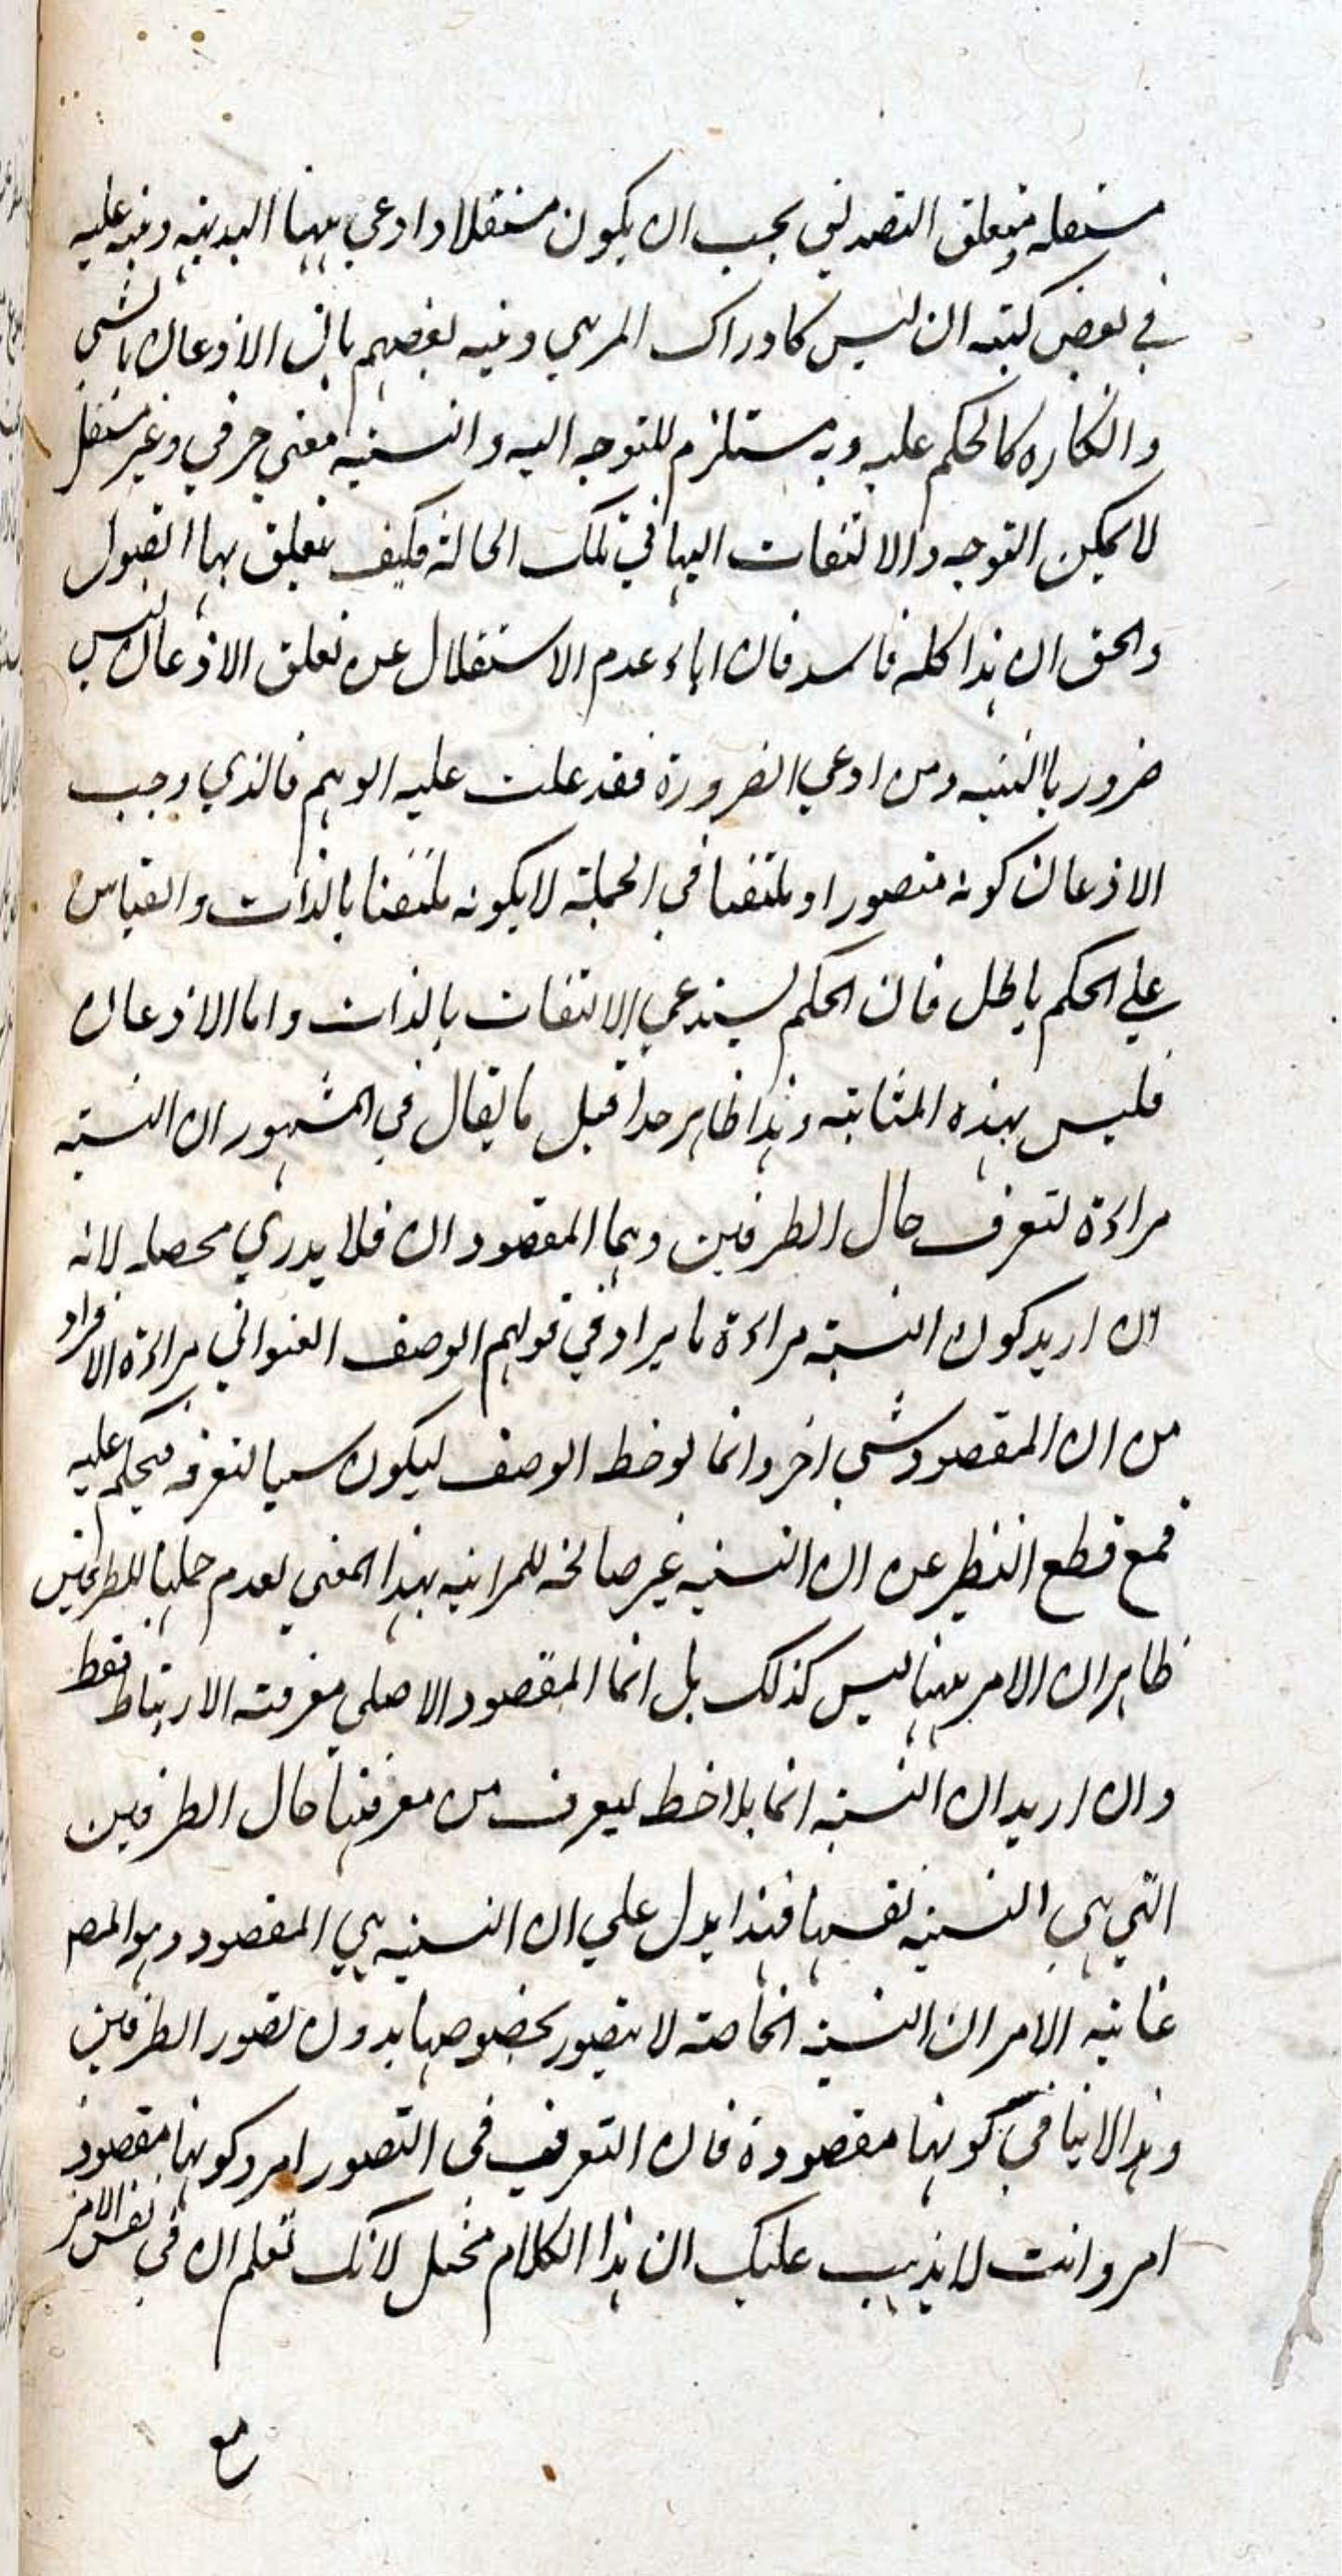 مستقلة ومتعلق التصديق يجب ان يكون مستقلا وادعي ههنا البديهية ونبه عليه
في بعض كتبه ان ليس كادراك المرئي ونبه بعضهم بان الاذعان بالشي
وانكاره كالحكم عليه وبه مستلزم للتوجه اليه والنسبة معني حرفي وغير مستقل
لا يمكن التوجه والالتفات اليها في تلك الحالة فكيف يتعلق بها القبول
والحق ان هذا كله فاسد فان اباء عدم الاستقلال عن تعلق الاذعان ليس
ضروريا البته ومن ادعي الضرورة فقد غلب عليه الوهم فالذي وجب
الاذعان كونه متصورا وملتفتا في الجملة لا يكونه ملتفتا بالذات والقياس
علي الحكم باطل فان الحكم يستدعي الالتفات بالذات واما الاذعان
فليس بهذه المثابة وهذا ظاهر جدا قيل ما يقال في المشهور ان النسبة
مراءة لتعرف حال الطرفين وهما المقصودان فلا يدري محصله لانه
ان اريد كون النسبة مراءة ما يراد في قولهم الوصف العنواني مراءة الافراد
من ان المقصود شي اخر وانما لوحظ الوصف ليكون سببا لتعرفه فيحكم عليه
فمع قطع النظر عن ان النسبة غير صالحة للمراتية بهذا المعني لعدم حملها للطرفين
ظاهر ان الامر ههنا ليس كذلك بل انما المقصود الاصلي معرفة الارتباط فقط
وان اريد ان النسبة انما يلاحظ ليعرف من معرفتها حال الطرفين
التي هي النسبة نفسها فهذا يدل علي ان النسبة هي المقصود وهو المص
غاية الامر ان النسبة الخاصة لا يتصور بخصوصها بدون تصور الطرفين
وهذا لا ينافي كونها مقصودة فان التعرف في التصور امر وكونها مقصود
امر وانت لا يذهب عليك ان هذا الكلام مختل لانك تعلم ان في نفس الامر
مع